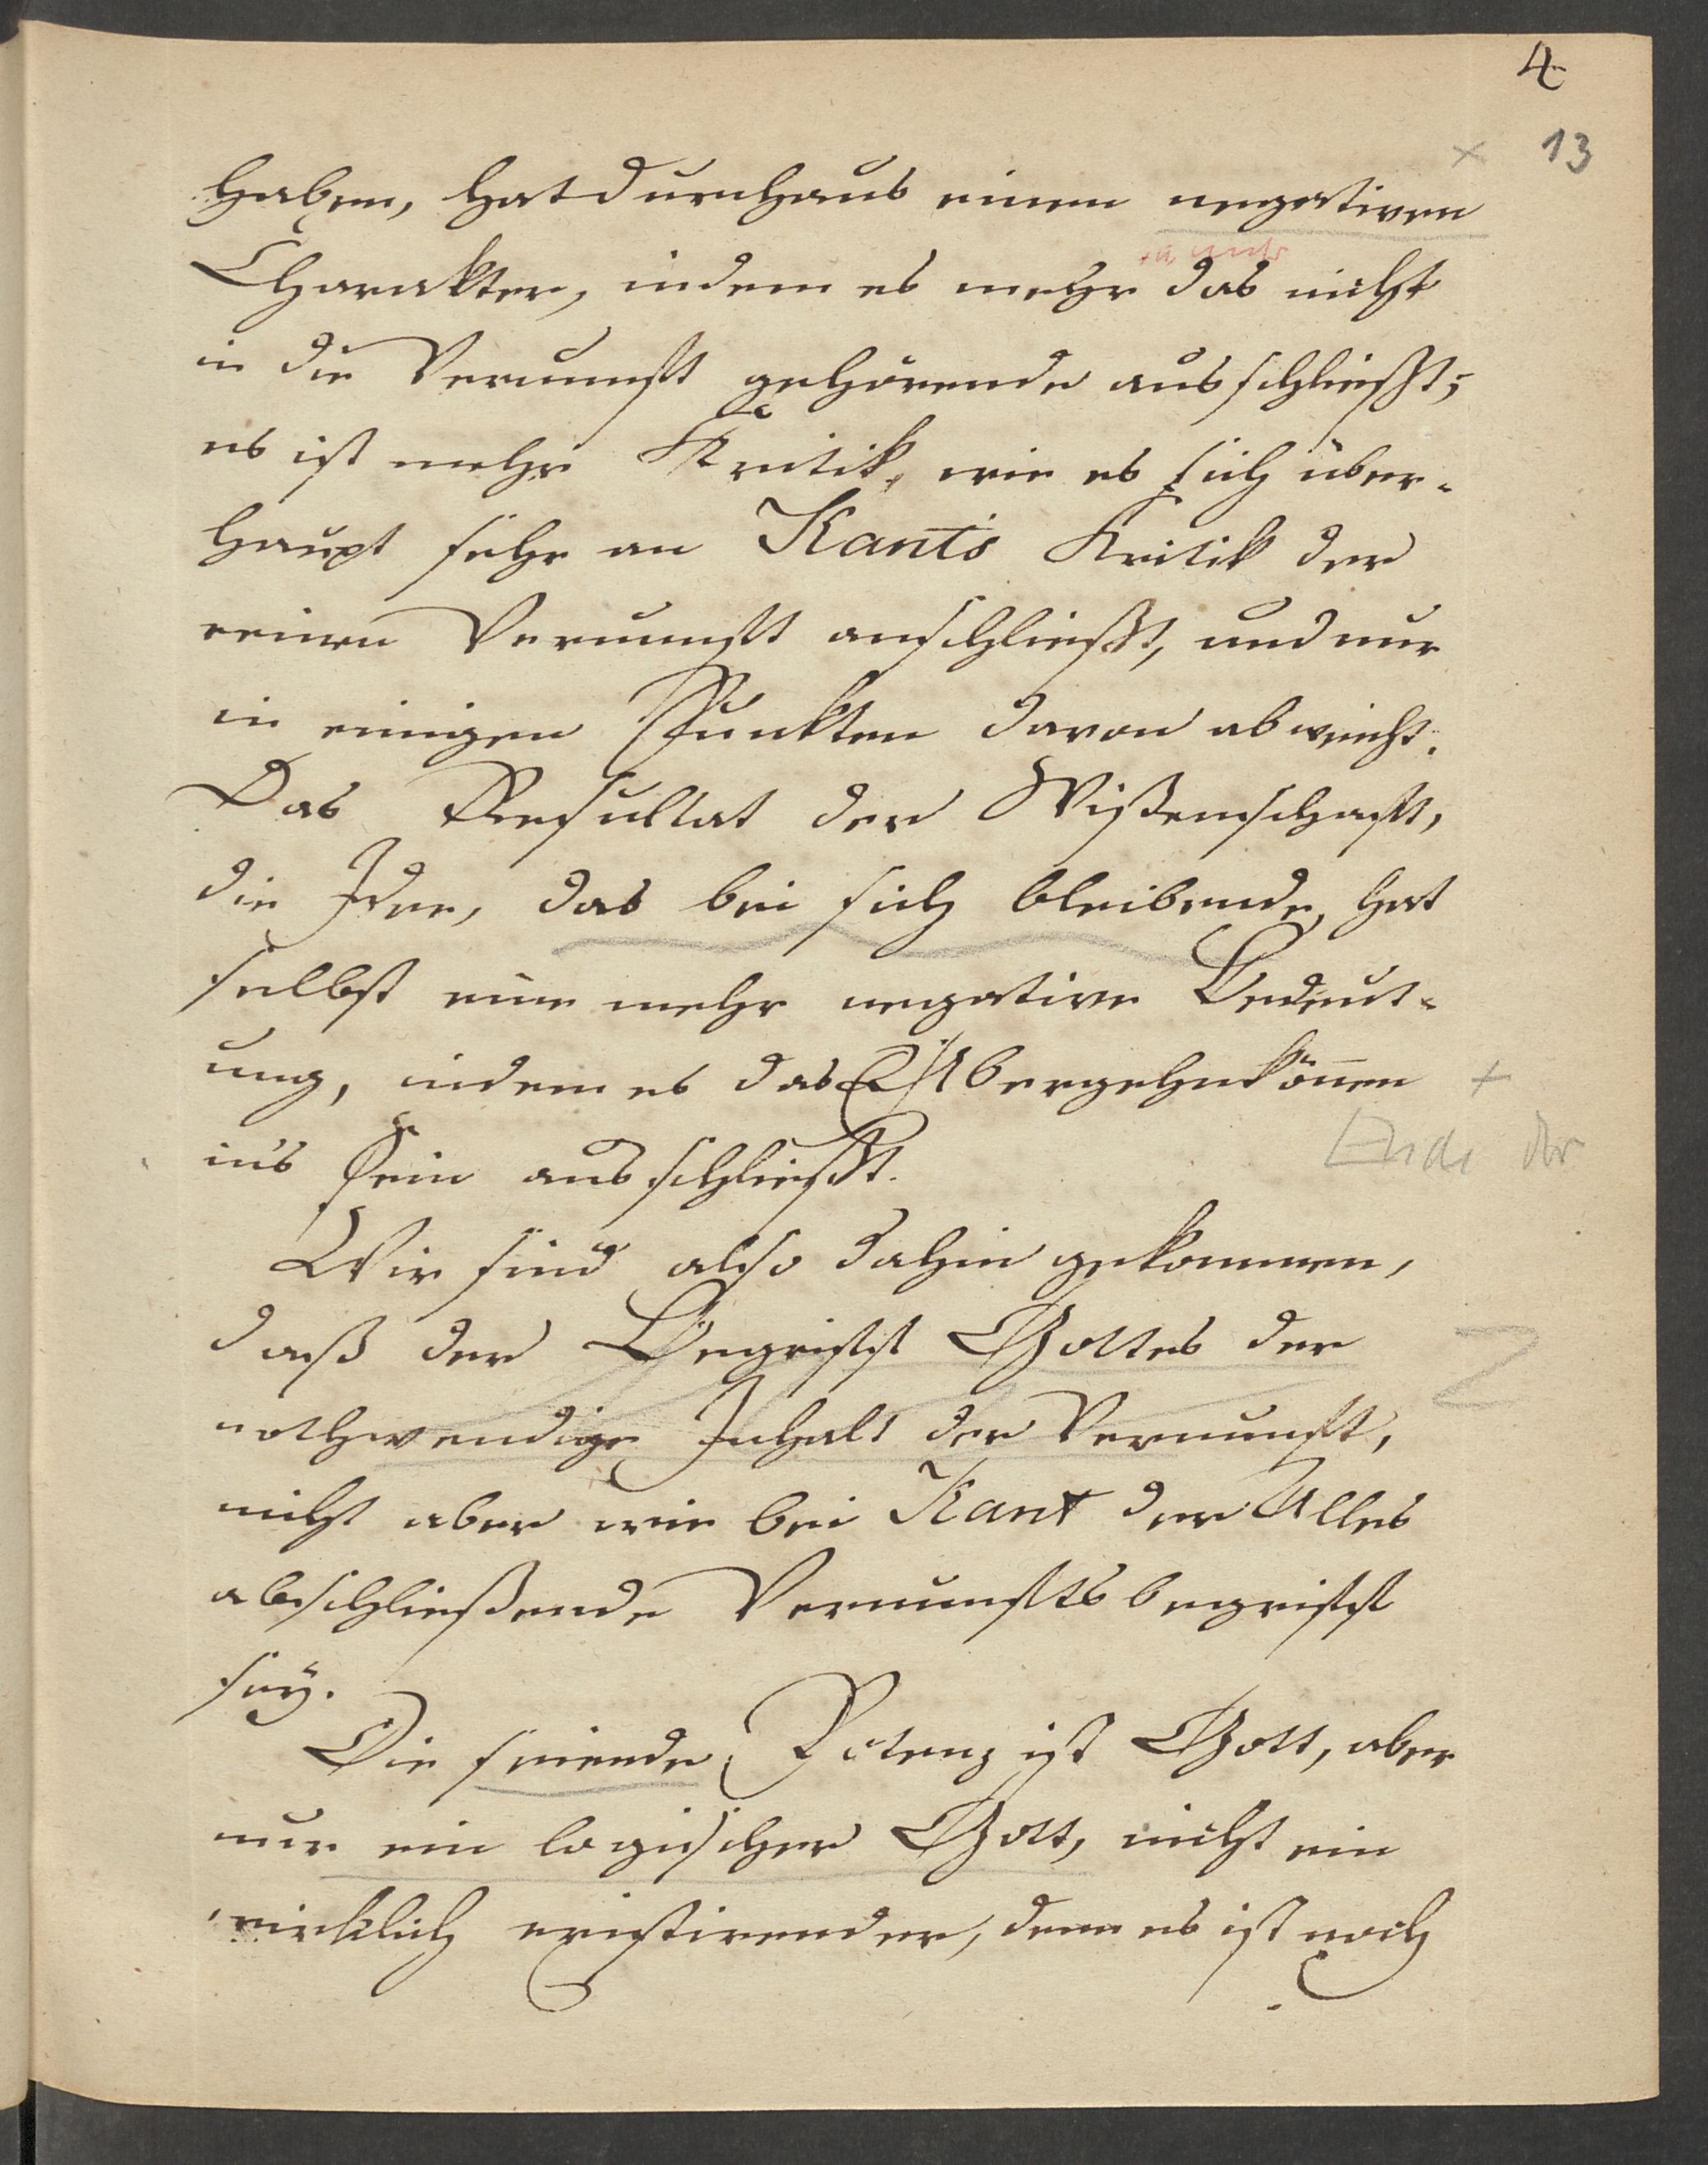 4
13
haben, hat durchaus einen negativen
Charakter, indem es mehr das nicht
in die Vernunft gehörende ausschließt;
es ist mehr Kritik, wie es sich über-
haupt sehr an Kant's Kritik der
reinen Vernunft anschließt, und nur
in einigen Punkten davon abweicht.
Das Resultat der Wißenschaft,
die Idee, das bei sich bleibende, hat
selbst eine mehr negative Bedeut-
ung, indem es das Übergehnkönnen
in's Sein ausschließt.
Ende der
Wir sind also dahin gekommen,
daß der Begriff Gottes der
nothwendige Inhalt der Vernunft,
nicht aber wie bei Kant der Alles
abschließende Vernunftsbegriff
sey.
Die seiende Potenz ist Gott, aber
nur ein logischer Gott, nicht ein
wirklich existirender, denn es ist noch